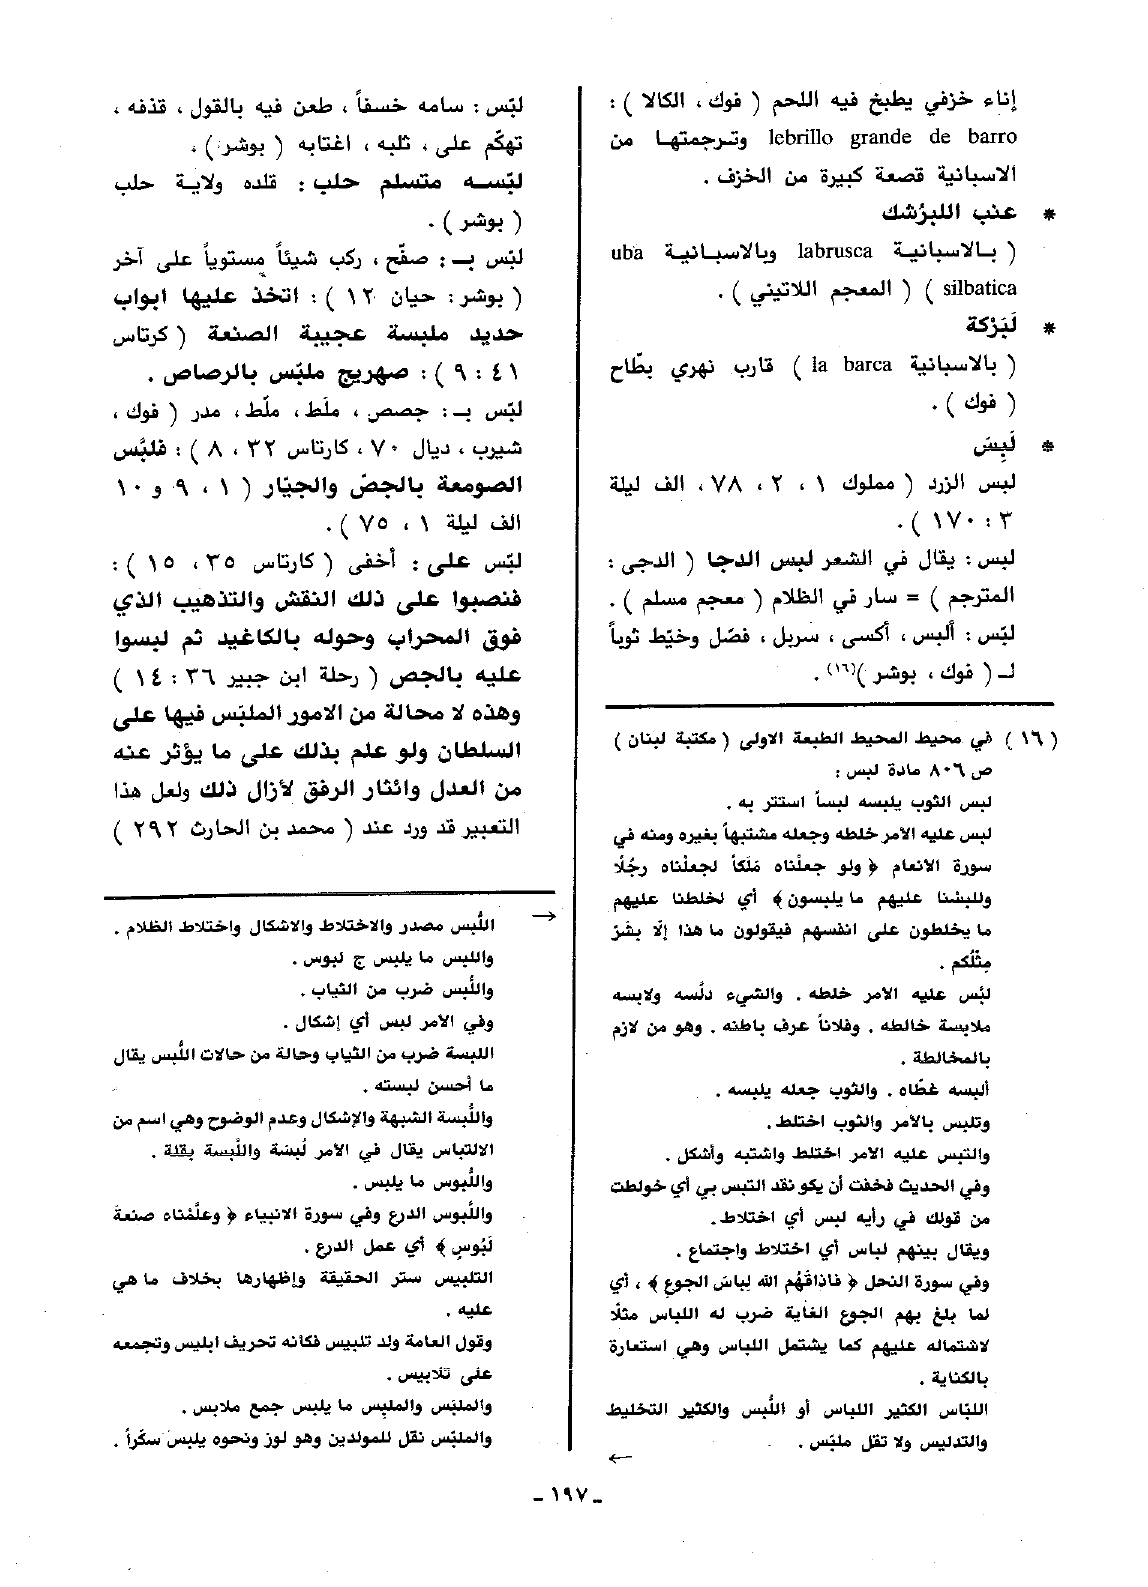 إناء خزفي يطبخ فيه اللحم ( فوك ، الكالا ) :
lebrillo grande de barro وترجمتها من
الاسبانية قصعة كبيرة من الخزف .
* عنب اللبرُشك
( بالاسبانية labrusca وبالاسبانية uba
silbatica ) ( المعجم اللاتيني ) .
* لَبَرْكة
( بالاسبانية la barca ) قارب نهري بطّاح
( فوك ) .
* لَبِسَ
لبس الزرد ( مملوك ١ ، ٢ ، ٧٨ ، الف ليلة
٣ : ١٧٠ ) .
لبس : يقال في الشعر لبس الدجا ( الدجى :
المترجم ) = سار في الظلام ( معجم مسلم ) .
لبّس : ألبس ، أكسى ، سربل ، فصّل وخيّط ثوباً
لـ ( فوك ، بوشر )(١٦) .
( ١٦ ) في محيط المحيط الطبعة الاولى ( مكتبة لبنان )
ص ٨٠٦ مادة لبس :
لبس الثوب يلبسه لبساً استتر به .
لبس عليه الامر خلطه وجعله مشتبهاً بغيره ومنه في
سورة الانعام ﴿ ولو جعلْناه مَلَكاً لجعلْناه رجُلًا
وللبسْنا عليهم ما يلبسون ﴾ أي لخلطنا عليهم
ما يخلطون على انفسهم فيقولون ما هذا إلّا بشَرٌ
مِثْلُكم .
لبّس عليه الامر خلطه . والشيء دلّسه ولابسه
ملابسة خالطه . وفلاناً عرف باطنه . وهو من لازم
بالمخالطة .
ألبسه غطّاه . والثوب جعله يلبسه .
وتلبس بالامر والثوب اختلط .
والتبس عليه الامر اختلط واشتبه وأشكل .
وفي الحديث فخفت أن يكو نقد التبس بي أي خولطت
من قولك في رأيه لبس أي اختلاط .
ويقال بينهم لباس أي اختلاط واجتماع .
وفي سورة النحل ﴿ فاذاقَهُم الله لِباسَ الجوع ﴾ ، أي
لما بلغ بهم الجوع الغاية ضرب له اللباس مثلًا
لاشتماله عليهم كما يشتمل اللباس وهي استعارة
بالكناية .
اللبّاس الكثير اللباس أو اللُّبس والكثير التخليط
والتدليس ولا تقل ملبّس .
←
لبّس : سامه خسفاً ، طعن فيه بالقول ، قذفه ،
تهكّم على ، ثلبه ، اغتابه ( بوشر ) .
لبّسه متسلم حلب : قلده ولاية حلب
( بوشر ) .
لبّس بـ : صفّح ، ركب شيئاً مستوياً على آخر
( بوشر : حيان ١٢ ) : اتخذ عليها ابواب
حديد ملبسة عجيبة الصنعة ( كرتاس
٤١ : ٩ ) : صهريج ملبّس بالرصاص .
لبّس بـ : جصص ، ملَط ، ملّط ، مدر ( فوك ،
شيرب ، ديال ٧٠ ، كارتاس ٣٢ ، ٨ ) : فلبّس
الصومعة بالجصّ والجيّار ( ١ ، ٩ و ١٠
الف ليلة ١ ، ٧٥ ) .
لبّس على : أخفى ( كارتاس ٣٥ ، ١٥ ) :
فنصبوا على ذلك النقش والتذهيب الذي
فوق المحراب وحوله بالكاغيد ثم لبسوا
عليه بالجص ( رحلة ابن جبير ٣٦ : ١٤ )
وهذه لا محالة من الامور الملبّس فيها على
السلطان ولو علم بذلك على ما يؤثر عنه
من العدل وائثار الرفق لأزال ذلك ولعل هذا
التعبير قد ورد عند ( محمد بن الحارث ٢٩٢ )
→ اللُّبس مصدر والاختلاط والاشكال واختلاط الظلام .
واللبس ما يلبس ج لبوس .
واللُّبس ضرب من الثياب .
وفي الامر لبس أي إشكال .
اللبسة ضرب من الثياب وحالة من حالات اللُّبس يقال
ما أحسن لبسته .
واللُّبسة الشبهة والإشكال وعدم الوضوح وهي اسم من
الالتباس يقال في الامر لُبسَة واللُّبسة بقلة .
واللُّبوس ما يلبس .
واللُّبوس الدرع وفي سورة الانبياء ﴿ وعلَّمْناه صنعةَ
لَبُوسٍ ﴾ أي عمل الدرع .
التلبيس ستر الحقيقة وإظهارها بخلاف ما هي
عليه .
وقول العامة ولد تلبيس فكانه تحريف ابليس وتجمعه
على تلابيس .
والملبَس والملبِس ما يلبس جمع ملابس .
والملبّس نقل للمولدين وهو لوز ونحوه يلبس سكّراً .
ـ ١٩٧ ـ